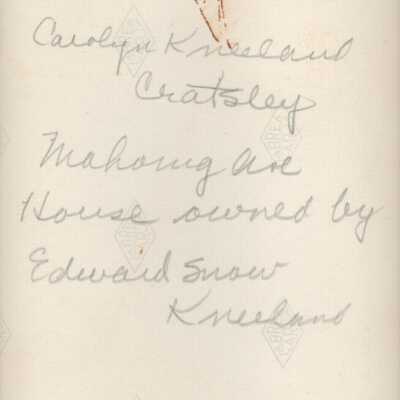 Carolyn Kneeland
Cratsley
Mahoning Ave
House owned by
Edward Snow
Kneeland